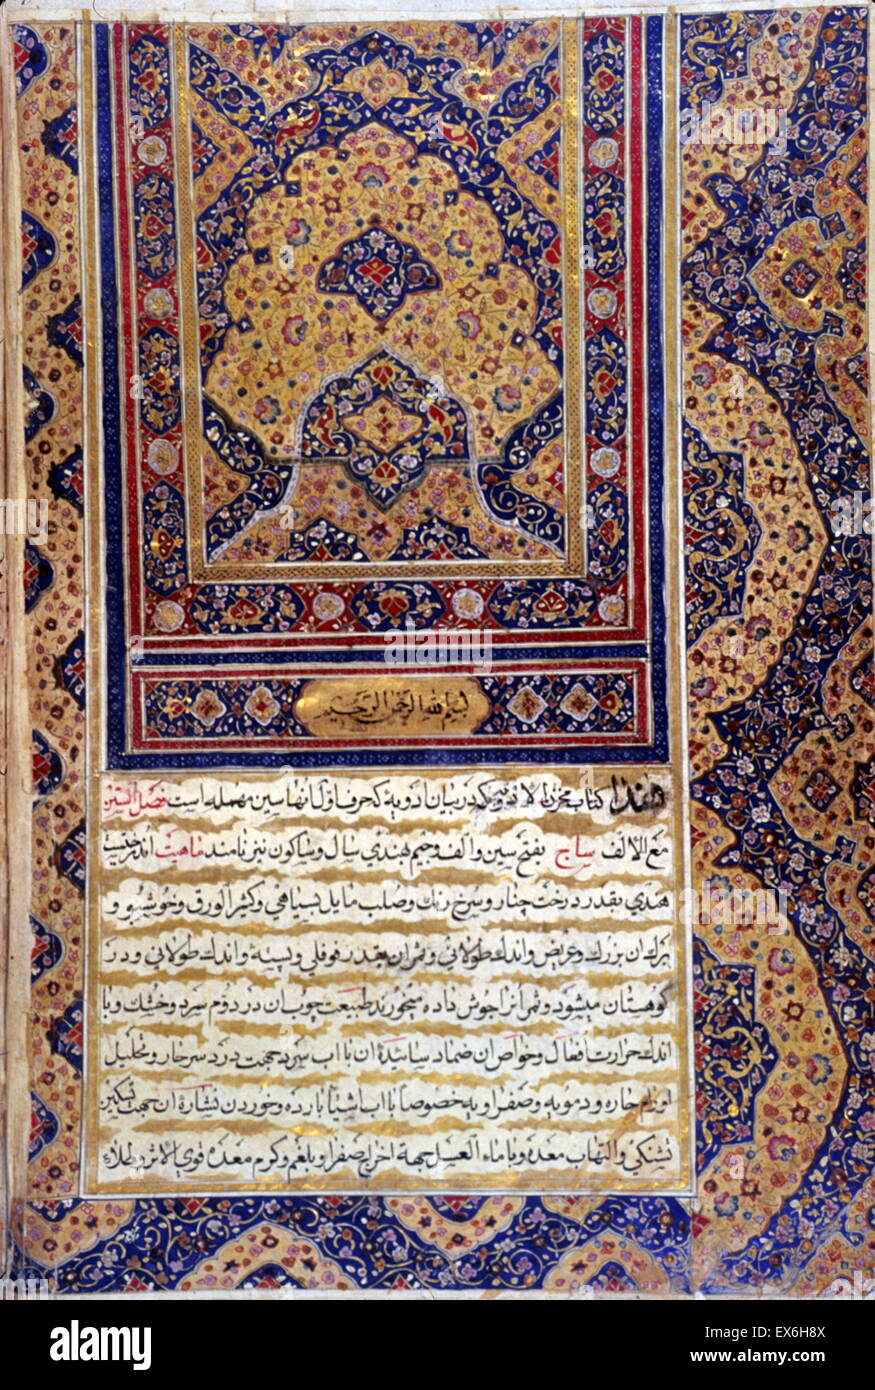 بسم الله الرحمن الرحيم
هذا كتاب مخزن الادويه كه در بيان ادويه كه حرف اول انها سين مهمله است فصل السين
مع الالف ساج بفتح سين و الف و جيم بهندي سال و ساكون نيز نامند ماهيت ان درختيست
هندي بقدر درخت چنار و سرخ رنك و صلب مايل بسياهي و كثير الورق و خوشبو و
برك ان بزرك و عريض و اندك طولاني و ثمر ان بقدر فوفلي و پسته و اندك طولاني و در
كوهستان ميشود و ثمر انرا جوش داده ميخورند طبيعت چوب ان در دوم سرد و خشك و با
اندك حرارت افعال و خواص ان ضماد سائيدۀ ان با اب سرد جهت درد سر حار و تحليل
اورام حاره و دمويه و صفراويه خصوصا با اب اشياء بارده و خوردن نشارۀ ان جهت تسكين
تشنكي و التهاب معده و با ماء العسل جهة اخراج صفرا و بلغم و كرم معده قوي الاثر و طلاء
alamy
Image ID: EX6H8X
www.alamy.com